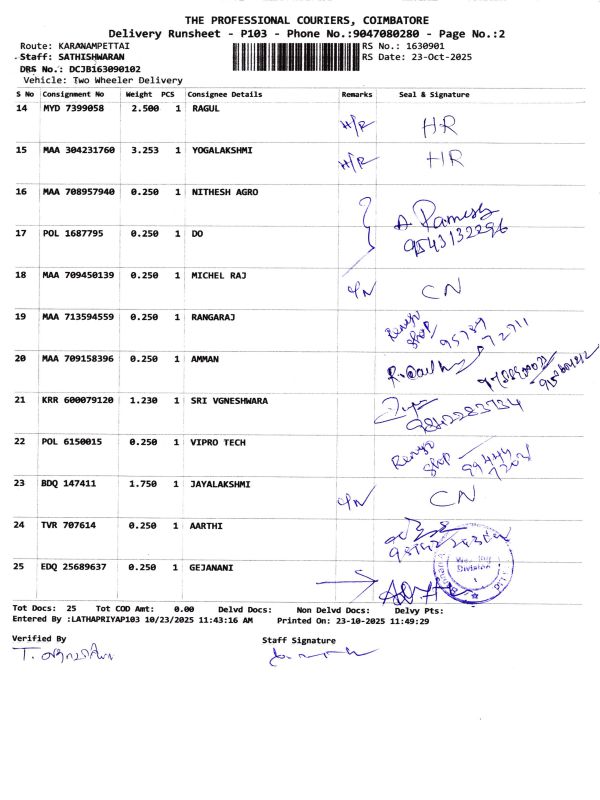 THE PROFESSIONAL COURIERS, COIMBATORE
Delivery Runsheet - P103 - Phone No.:9047080280 - Page No.:2
Route: KARANAMPETTAI RS No.: 1630901
Staff: SATHISHWARAN RS Date: 23-Oct-2025
DRS No.: DCJB163090102
Vehicle: Two Wheeler Delivery
S No Consignment No Weight PCS Consignee Details Remarks Seal & Signature
14 MYD 7399058 2.500 1 RAGUL H/R HR
15 MAA 304231760 3.253 1 YOGALAKSHMI H/R HR
16 MAA 708957940 0.250 1 NITHESH AGRO A. Ramesh
17 POL 1687795 0.250 1 DO 9543132296
18 MAA 709450139 0.250 1 MICHEL RAJ C/N CN
19 MAA 713594559 0.250 1 RANGARAJ shop
20 MAA 709158396 0.250 1 AMMAN
21 KRR 600079120 1.230 1 SRI VGNESHWARA
22 POL 6150015 0.250 1 VIPRO TECH shop
23 BDQ 147411 1.750 1 JAYALAKSHMI C/N CN
24 TVR 707614 0.250 1 AARTHI
Division
25 EDQ 25689637 0.250 1 GEJANANI
Tot Docs: 25 Tot COD Amt: 0.00 Delvd Docs: Non Delvd Docs: Delvy Pts:
Entered By :LATHAPRIYAP103 10/23/2025 11:43:16 AM Printed On: 23-10-2025 11:49:29
Verified By Staff Signature